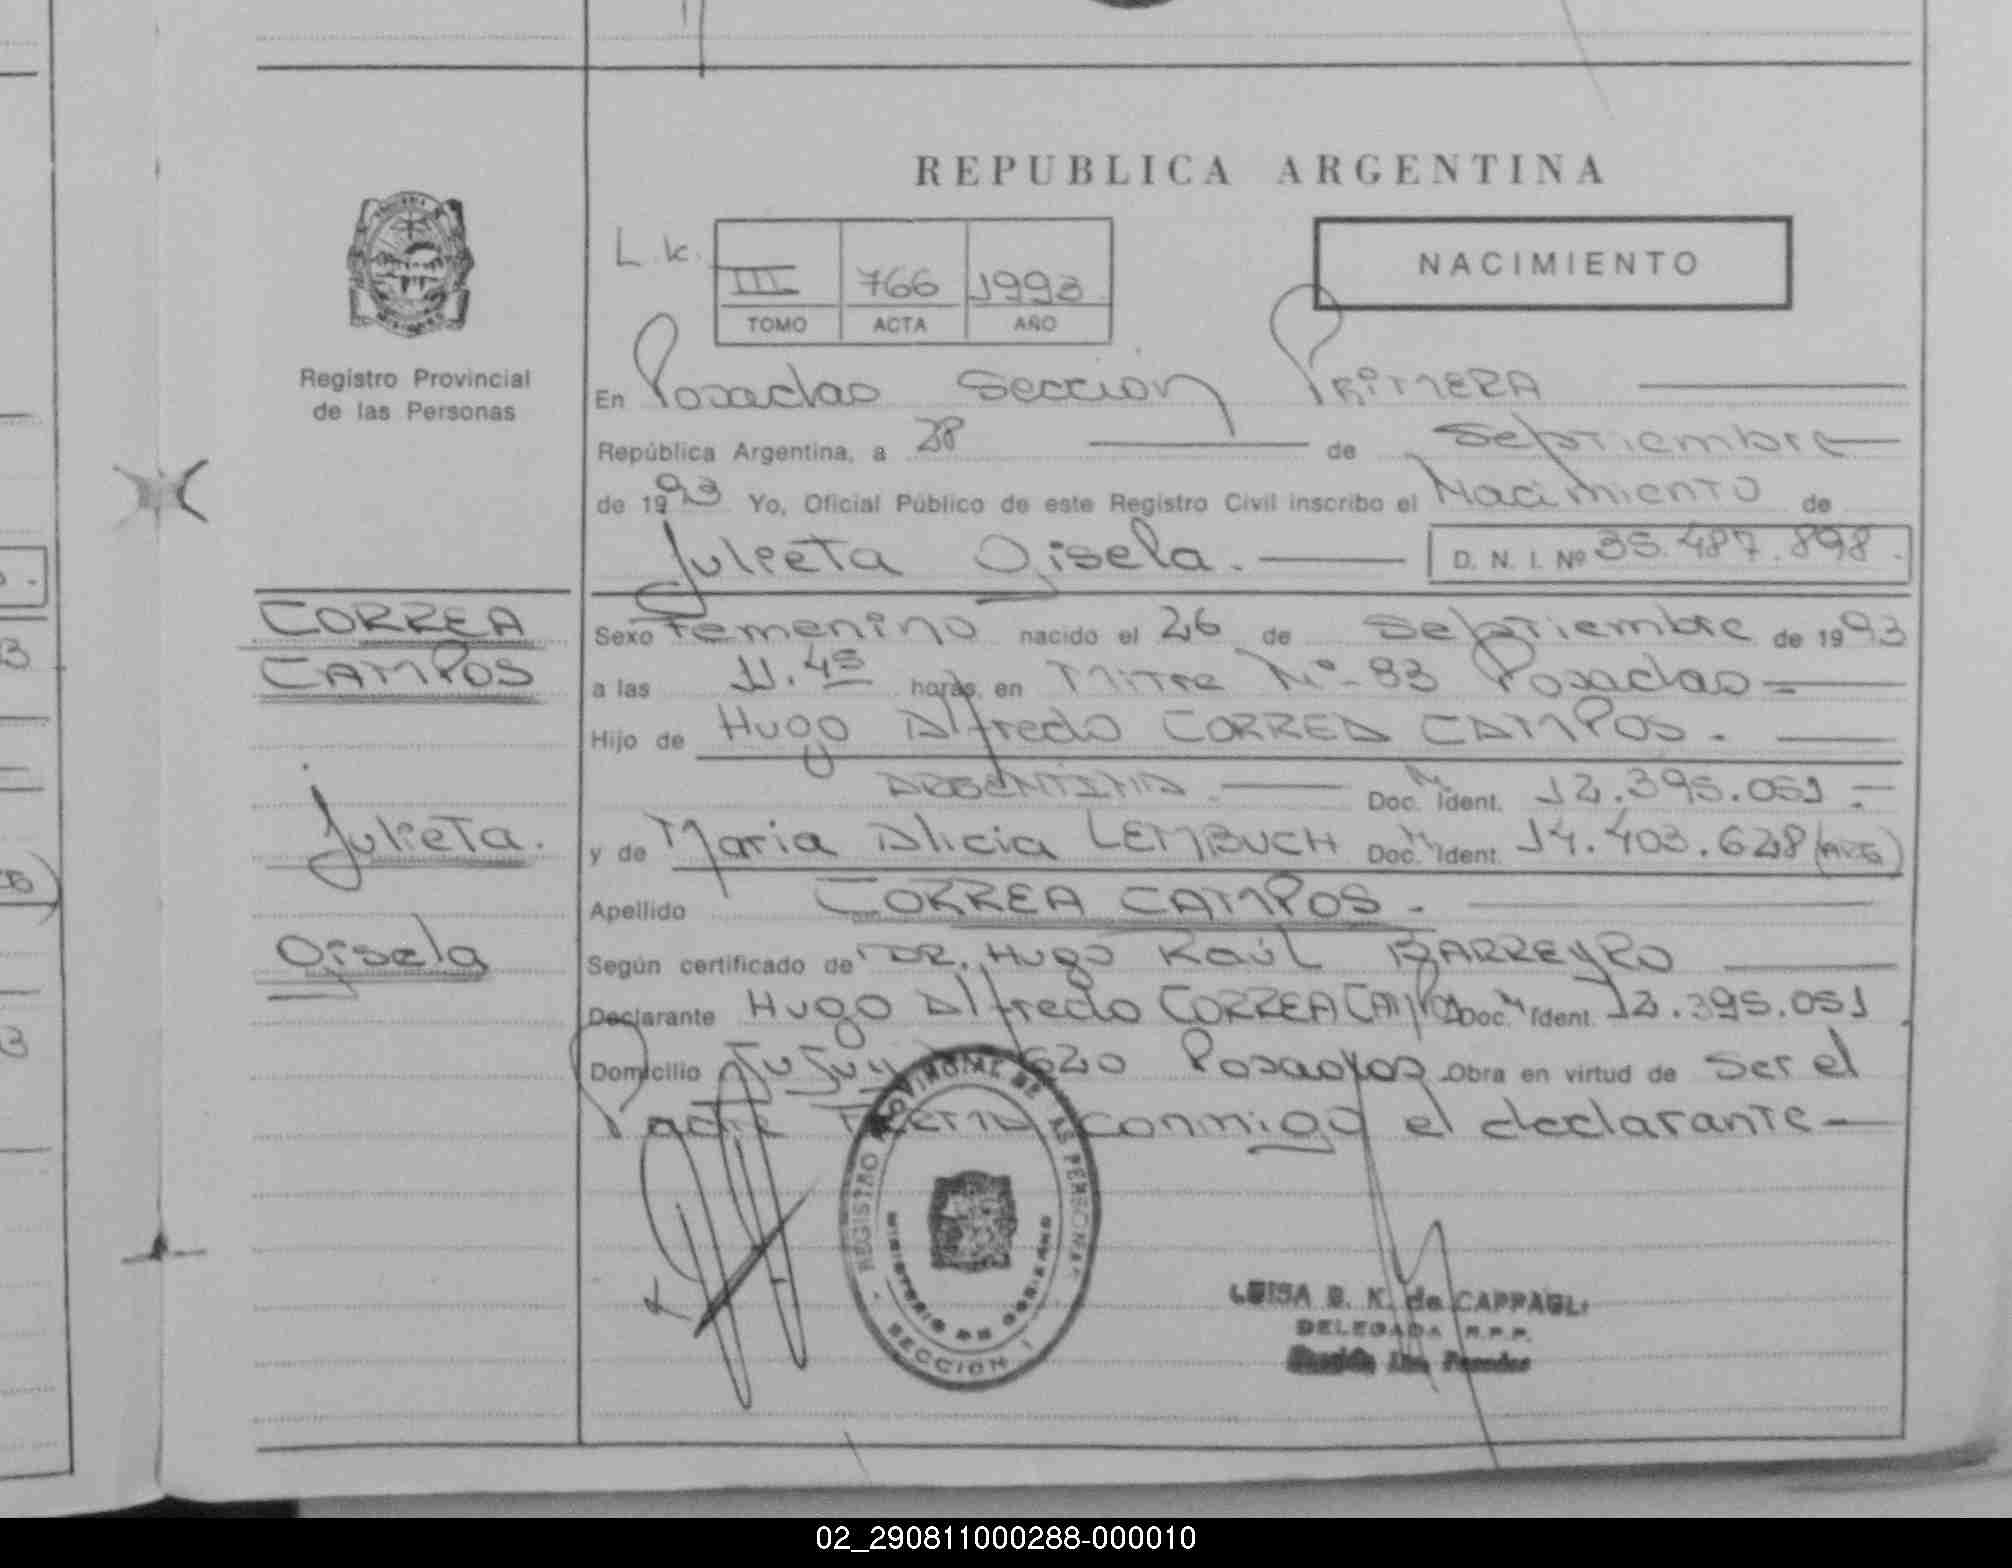 REPUBLICA ARGENTINA
NACIMIENTO
L.k. III 766 1993
TOMO ACTA AÑO
Registro Provincial
de las Personas
En Posadas Seccion PRiMERA
República Argentina, a 28 de Septiembre
de 1993 Yo, Oficial Público de este Registro Civil inscribo el Nacimiento de
Julieta Gisela. D. N. I. Nº 35.487.898.
CORREA
CAMPOS
Julieta.
Gisela
Sexo Femenino nacido el 26 de Septiembre de 1993
a las 11.45 horas, en Mitre Nº 93 Posadas
Hijo de Hugo Alfredo CORREA CAMPOS.
ARGENTINA Doc. N. Ident. 12.395.051
y de Maria Alicia LEMBUCH Doc. N. Ident. 14.403.628 (ARG)
Apellido CORREA CAMPOS.
Según certificado de DR. Hugo RaúL BARREyRO
Declarante Hugo Alfredo CORREA CAMPOS Doc. N. Ident. 12.395.051
Domicilio JuJuy 620 Posadas Obra en virtud de Ser el
Padre Firma conmigo el declarante
REGISTRO PROVINCIAL DE LAS PERSONAS
MINISTERIO DE GOBIERNO
SECCION 1
LUISA B. K. de CAPPAGLI
DELEGADA R.P.P.
Sección 1ra. Posadas
02_290811000288-000010